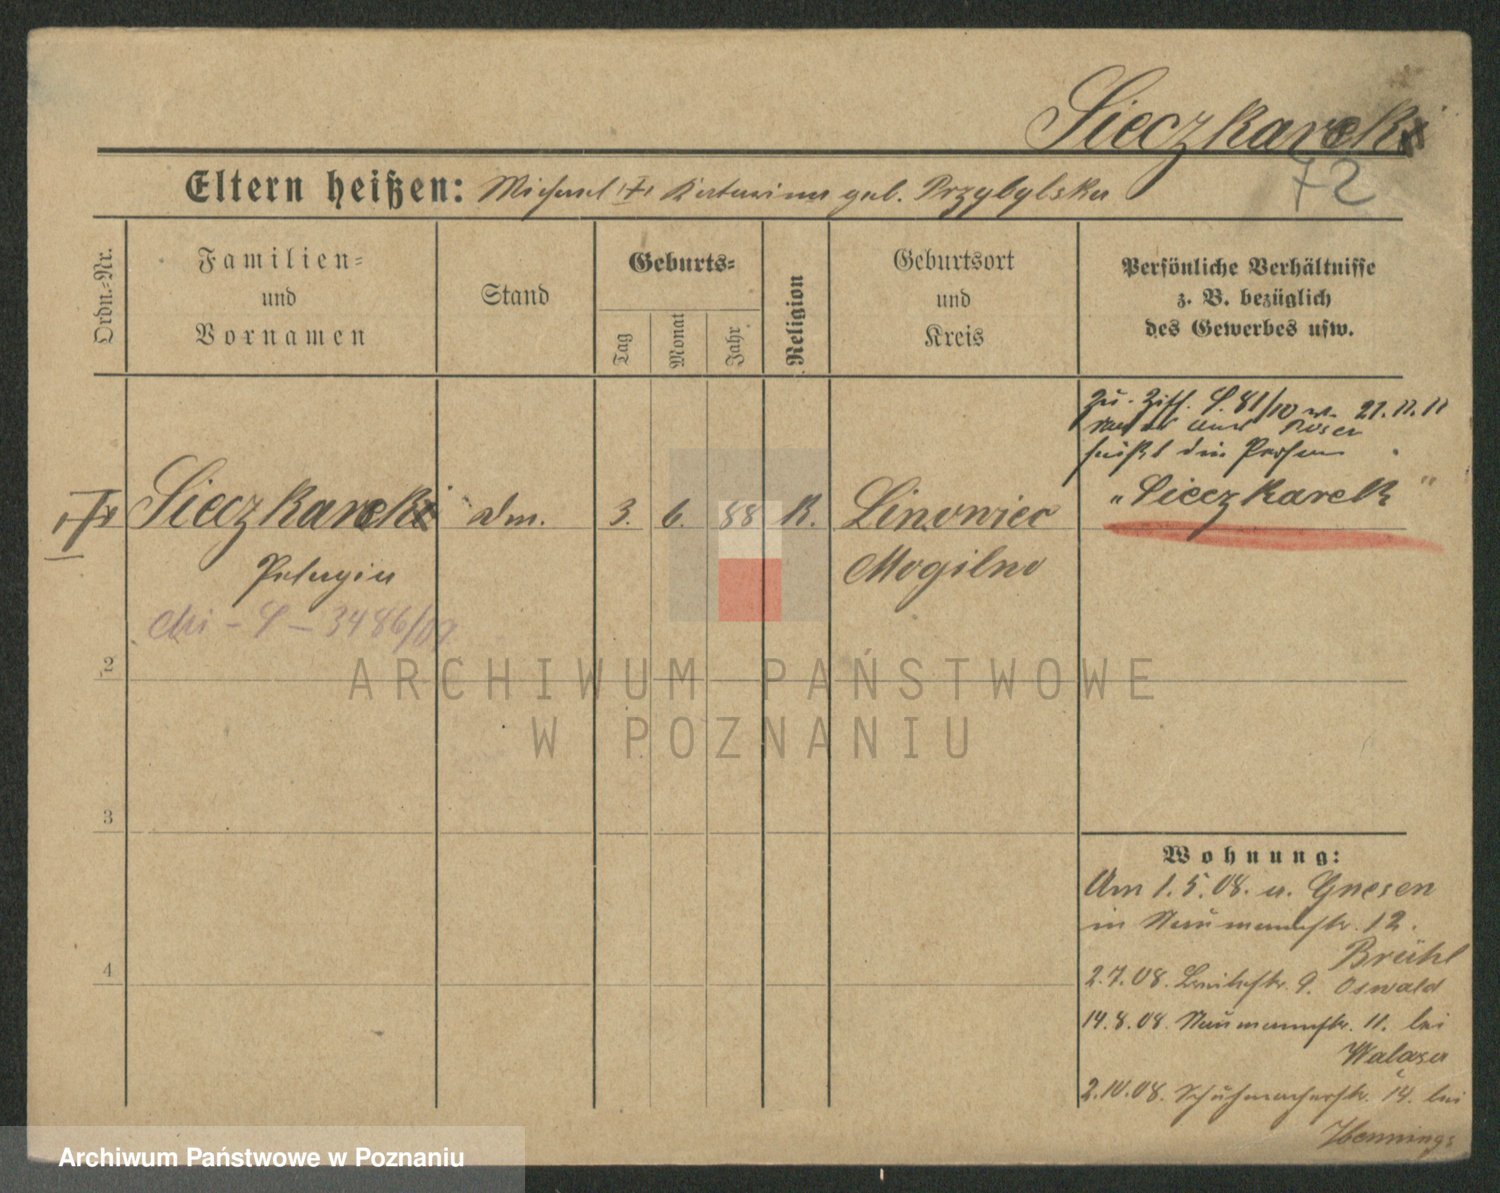 Sieczkarek
72
Eltern heißen: Michael u. Katarina geb. Przybylska
Ordn.-Nr.
Familien-
und
Vornamen
Stand
Geburts-
Tag
Monat
Jahr
Religion
Geburtsort
und
Kreis
Persönliche Verhältnisse
z. B. bezüglich
des Gewerbes usw.
zu. Ziff. S. 81/10 v. 21.11.11
Posen
heißt die Person
"Sieczkarek"
Sieczkarek
3. 6. 88 K. Linowiec
Pelagia
Mogilno
S - 3486/09.
2
ARCHIWUM PAŃSTWOWE
W POZNANIU
3
Wohnung:
Am 1.5.08. v. Gnesen
in Naumannstr. 12.
Brühl
4
2.7.08. 9. Oswald
14.8.08. Naumannstr. 11. bei
Walasa
2.10.08. Schuhmacherstr. 14. bei
Hennings
Archiwum Państwowe w Poznaniu